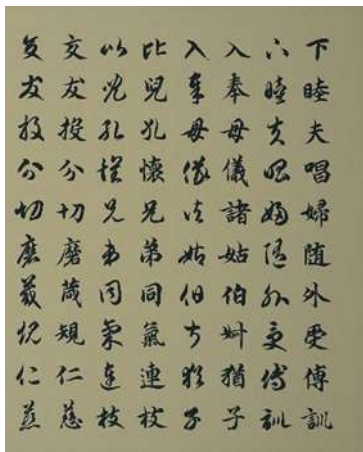 下睦夫唱婦随外受傅訓
下睦夫唱婦随外受傅訓
入奉母儀諸姑伯叔猶子
入奉母儀諸姑伯叔猶子
比兒孔懷兄弟同氣連枝
比兒孔懷兄弟同氣連枝
交友投分切磨箴規仁慈
交友投分切磨箴規仁慈